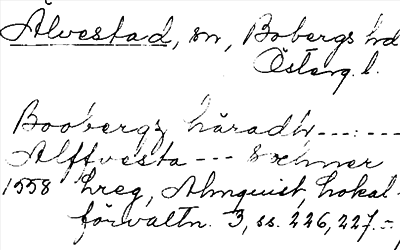 Älvestad, sn, Bobergs hd
Österg l.
Boobergz häradh ---:---
Alffvesta --- Sochner
1558 hreg, Almquist, Lokal-
förvaltn. 3, ss. 226, 227.